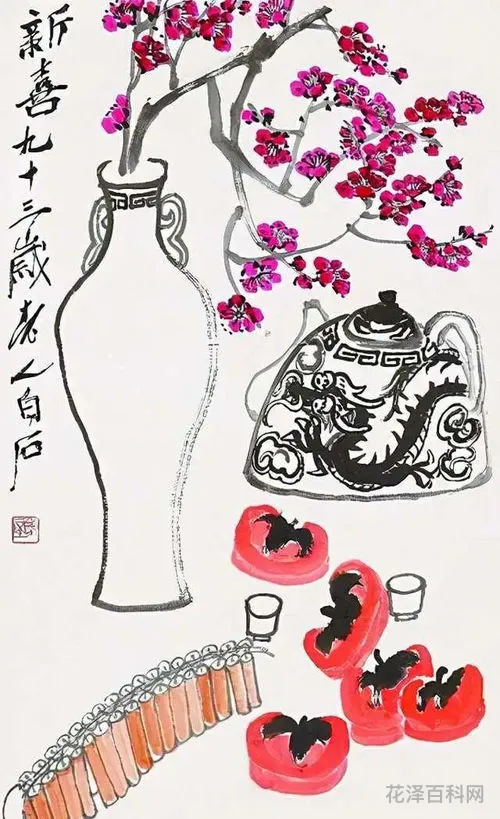 新喜九十三歲老人白石
花泽百科网